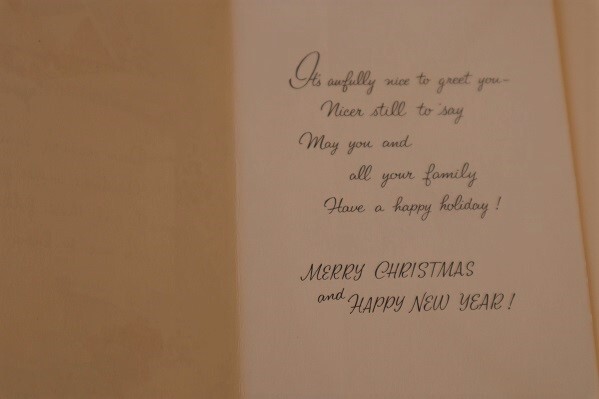 It's awfully nice to greet you—
Nicer still to say
May you and
all your family
Have a happy holiday!
MERRY CHRISTMAS
and HAPPY NEW YEAR!